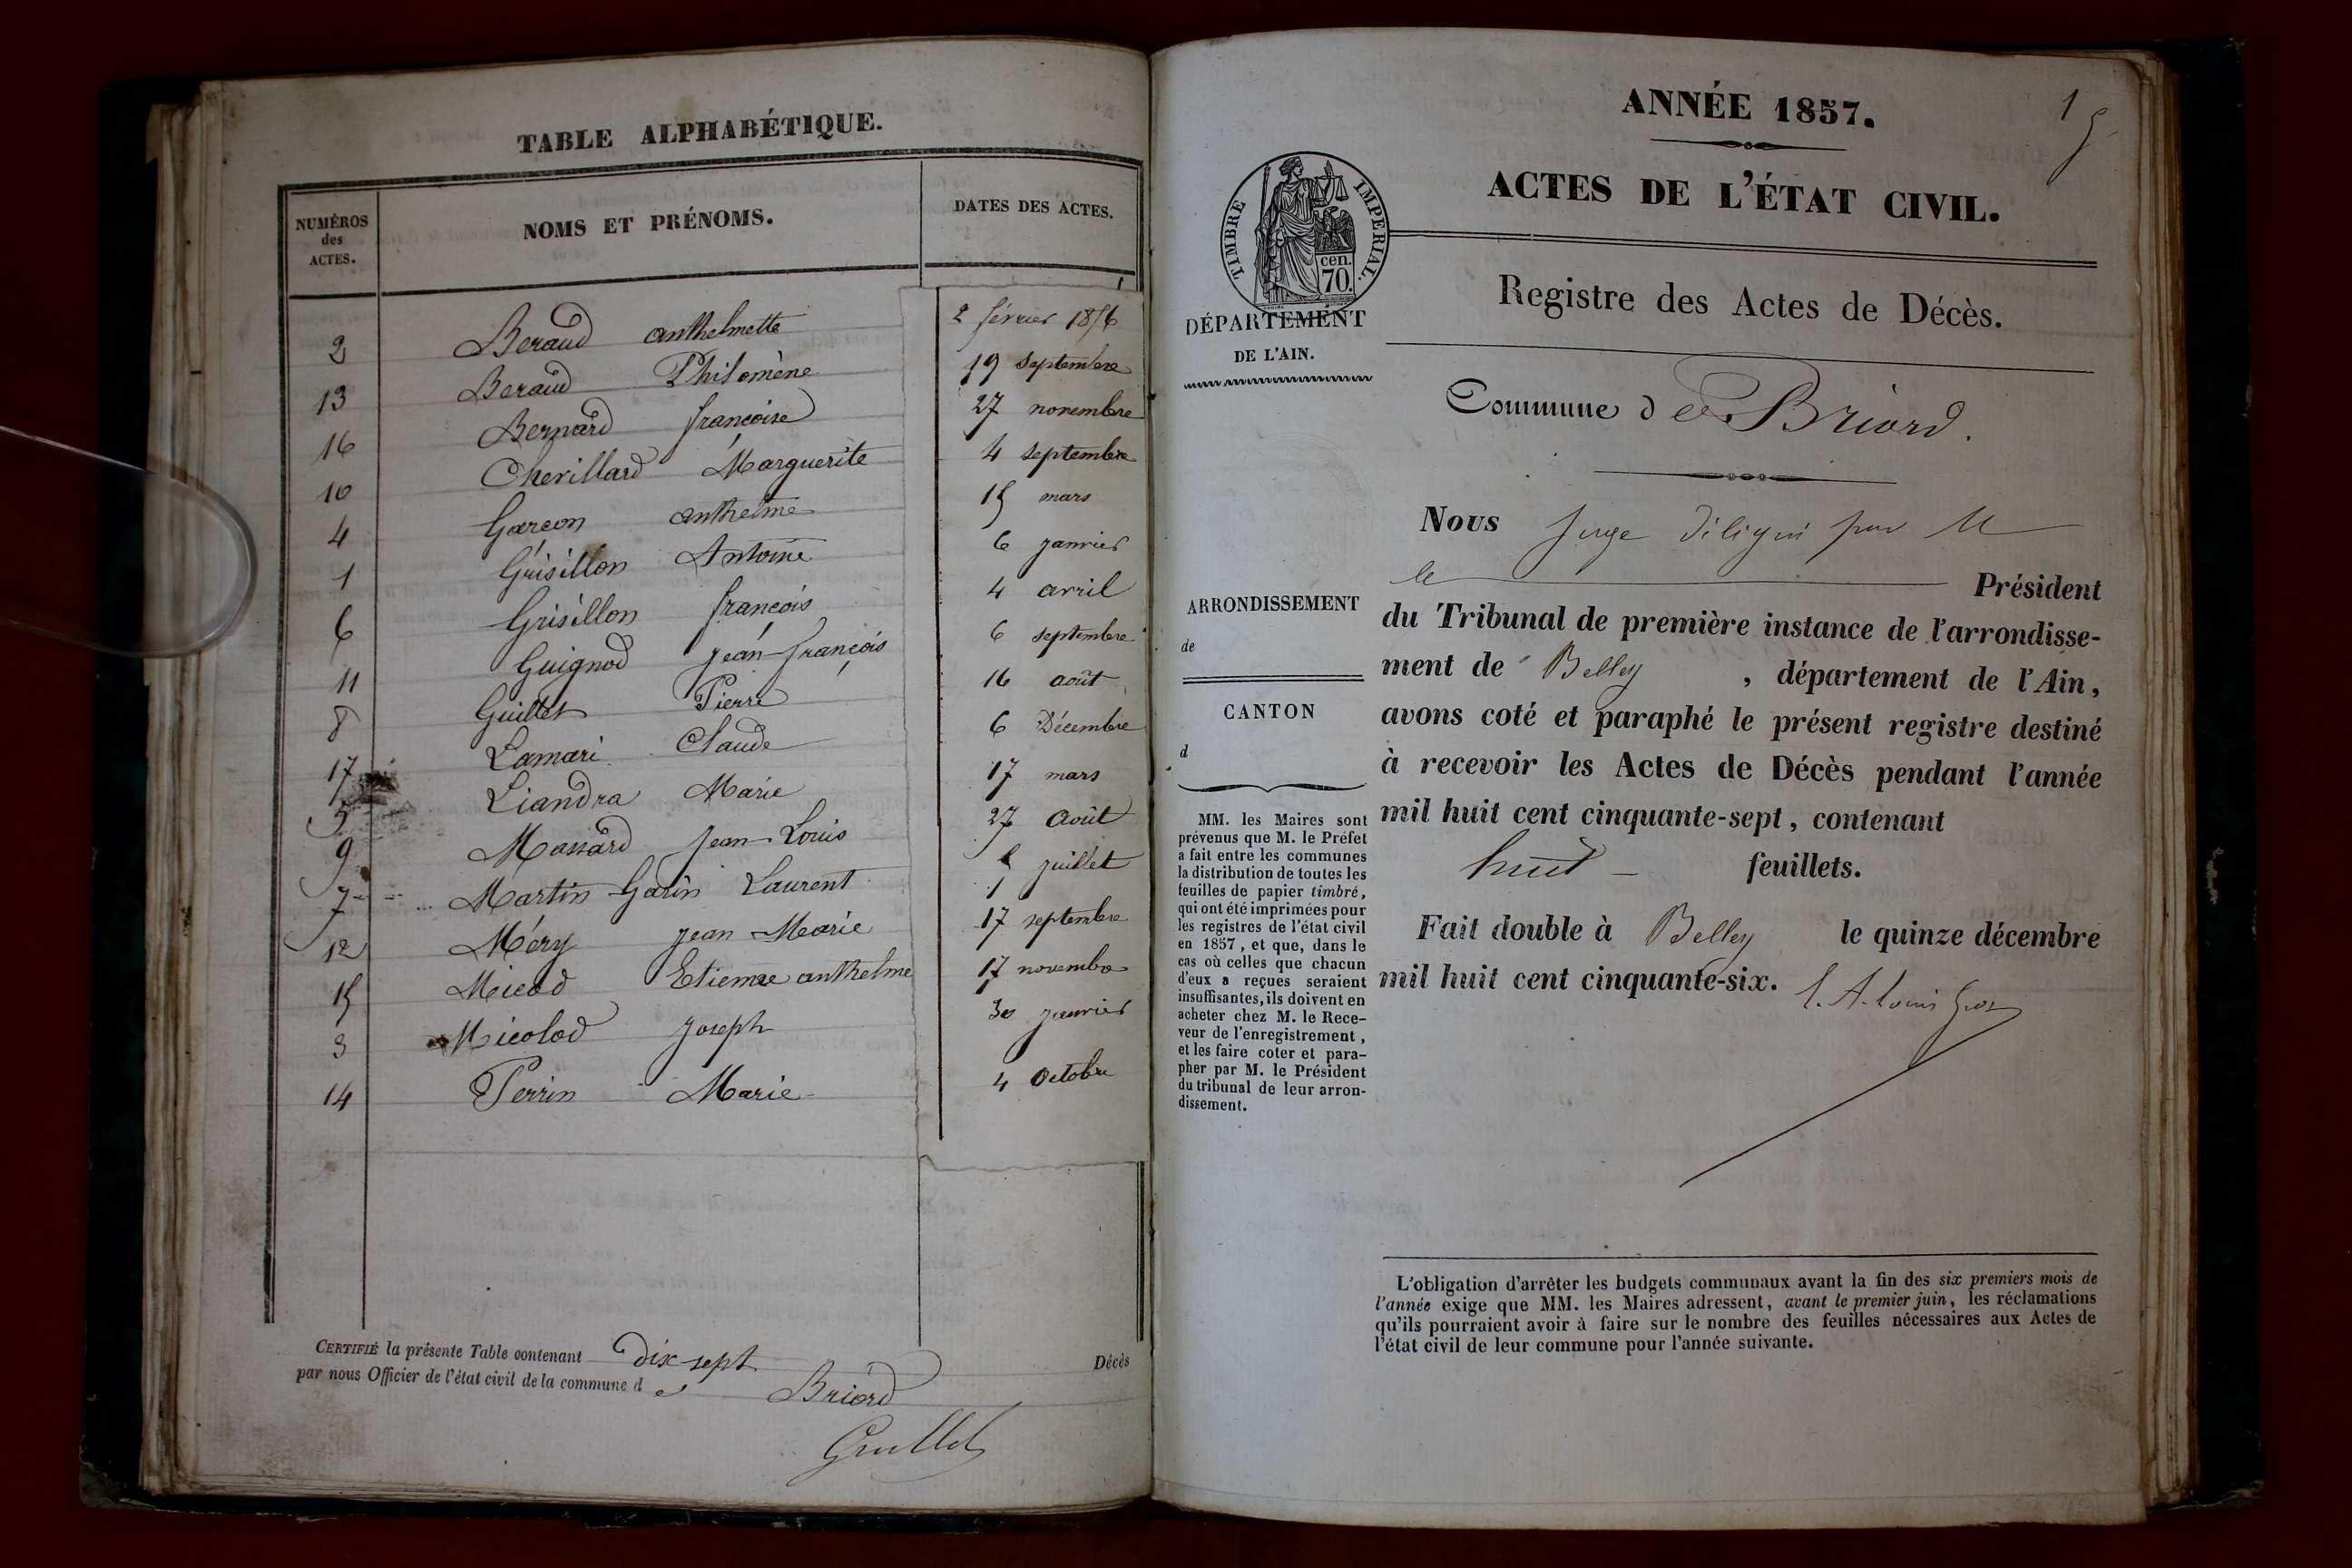 TABLE ALPHABÉTIQUE.
NUMÉROS des ACTES. NOMS ET PRÉNOMS. DATES DES ACTES.
2 Beraud anthelmette 2 février 1856
13 Beraud Philomène 19 septembre
16 Bernard françoise 27 novembre
10 Chevillard Marguerite 4 septembre
4 Garçon anthelme 15 mars
1 Grisillon Antoine 6 janvier
6 Grisillon françois 4 avril
11 Guignod jean-françois 6 septembre
8 Guillet Pierre 16 août
17 Lamari Claude 6 Décembre
5 Liandra Marie 17 mars
9 Massard jean-Louis 27 Août
7 Martin-Garin Laurent juillet
12 Méry jean Marie 17 septembre
15 Micod Etienne anthelme 17 novembre
3 Micolod joseph 30 janvier
14 Perrin Marie 4 Octobre
CERTIFIÉ la présente Table contenant dix-sept Décès
par nous Officier de l'état civil de la commune de Briord
Guillet
1
ANNÉE 1857.
ACTES DE L'ÉTAT CIVIL.
TIMBRE IMPERIAL.
cen.
70.
DÉPARTEMENT
DE L'AIN.
Registre des Actes de Décès.
Commune de Briord.
ARRONDISSEMENT
de
CANTON
d
MM. les Maires sont
prévenus que M. le Préfet
a fait entre les communes
la distribution de toutes les
feuilles de papier timbré,
qui ont été imprimées pour
les registres de l'état civil
en 1857, et que, dans le
cas où celles que chacun
d'eux a reçues seraient
insuffisantes, ils doivent en
acheter chez M. le Rece-
veur de l'enregistrement,
et les faire coter et para-
pher par M. le Président
du tribunal de leur arron-
dissement.
Nous juge par M
le Président
du Tribunal de première instance de l'arrondisse-
ment de Belley, département de l'Ain,
avons coté et paraphé le présent registre destiné
à recevoir les Actes de Décès pendant l'année
mil huit cent cinquante-sept, contenant
huit feuillets.
Fait double à Belley le quinze décembre
mil huit cent cinquante-six.
L'obligation d'arrêter les budgets communaux avant la fin des six premiers mois de
l'année exige que MM. les Maires adressent, avant le premier juin, les réclamations
qu'ils pourraient avoir à faire sur le nombre des feuilles nécessaires aux Actes de
l'état civil de leur commune pour l'année suivante.